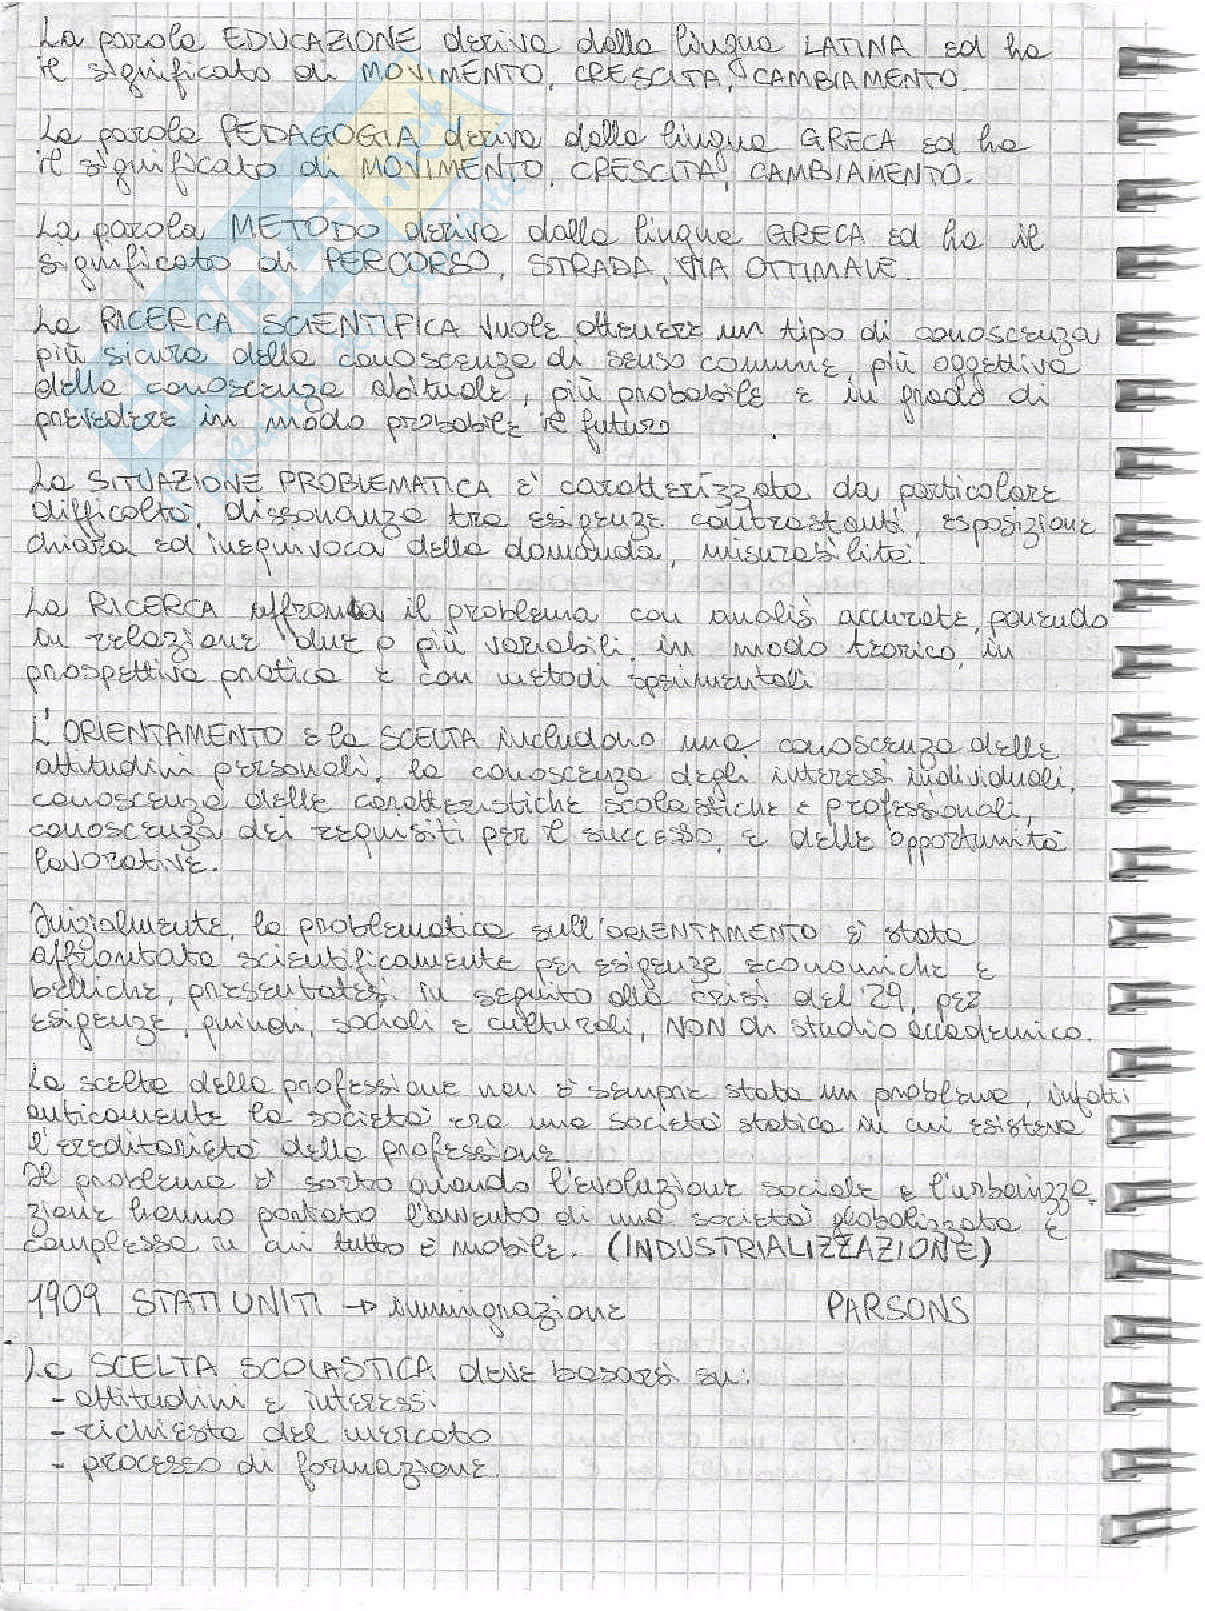 La parola EDUCAZIONE deriva dalla lingua LATINA ed ha
il significato di MOVIMENTO, CRESCITA, CAMBIAMENTO.
La parola PEDAGOGIA deriva dalla lingua GRECA ed ha
il significato di MOVIMENTO, CRESCITA, CAMBIAMENTO.
La parola METODO deriva dalla lingua GRECA ed ha il
significato di PERCORSO, STRADA, VIA OTTIMALE.
La RICERCA SCIENTIFICA vuole ottenere un tipo di conoscenza
più sicura della conoscenza di senso comune, più oggettiva
della conoscenza abituale, più probabile e in grado di
prevedere in modo probabile il futuro.
La SITUAZIONE PROBLEMATICA è caratterizzata da particolare
difficoltà, dissonanza tra esigenze contrastanti, esposizione
chiara ed inequivoca della domanda, misurabilità.
La RICERCA affronta il problema con analisi accurate, ponendo
in relazione due o più variabili, in modo teorico, in
prospettiva pratica e con metodi sperimentali
L'ORIENTAMENTO e la SCELTA includono una conoscenza delle
attitudini personali, la conoscenza degli interessi individuali,
conoscenza delle caratteristiche scolastiche e professionali,
conoscenza dei requisiti per il successo, e delle opportunità
lavorative.
Inizialmente, la problematica sull'ORIENTAMENTO è stata
affrontata scientificamente per esigenze economiche e
belliche, presentatesi in seguito alla crisi del '29, per
esigenze, quindi, sociali e culturali, NON di studio accademico.
La scelta della professione non è sempre stata un problema, infatti
anticamente la società era una società statica in cui esisteva
l'ereditarietà della professione.
Il problema è sorto quando l'evoluzione sociale e l'urbanizza-
zione hanno portato l'avvento di una società globalizzata e
complessa in cui tutto è mobile. (INDUSTRIALIZZAZIONE)
1909 STATI UNITI → immigrazione PARSONS
La SCELTA SCOLASTICA deve basarsi su:
- attitudini e interessi
- richiesta del mercato
- processo di formazione.